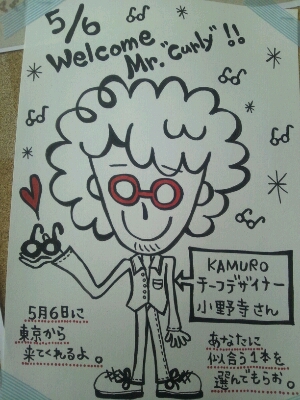 5/6
Welcome
Mr. "Curly" !!
KAMURO
チーフデザイナー
小野寺さん
5月6日に
東京から
来てくれるよ。
あなたに
似合う1本を
選んでもらお。